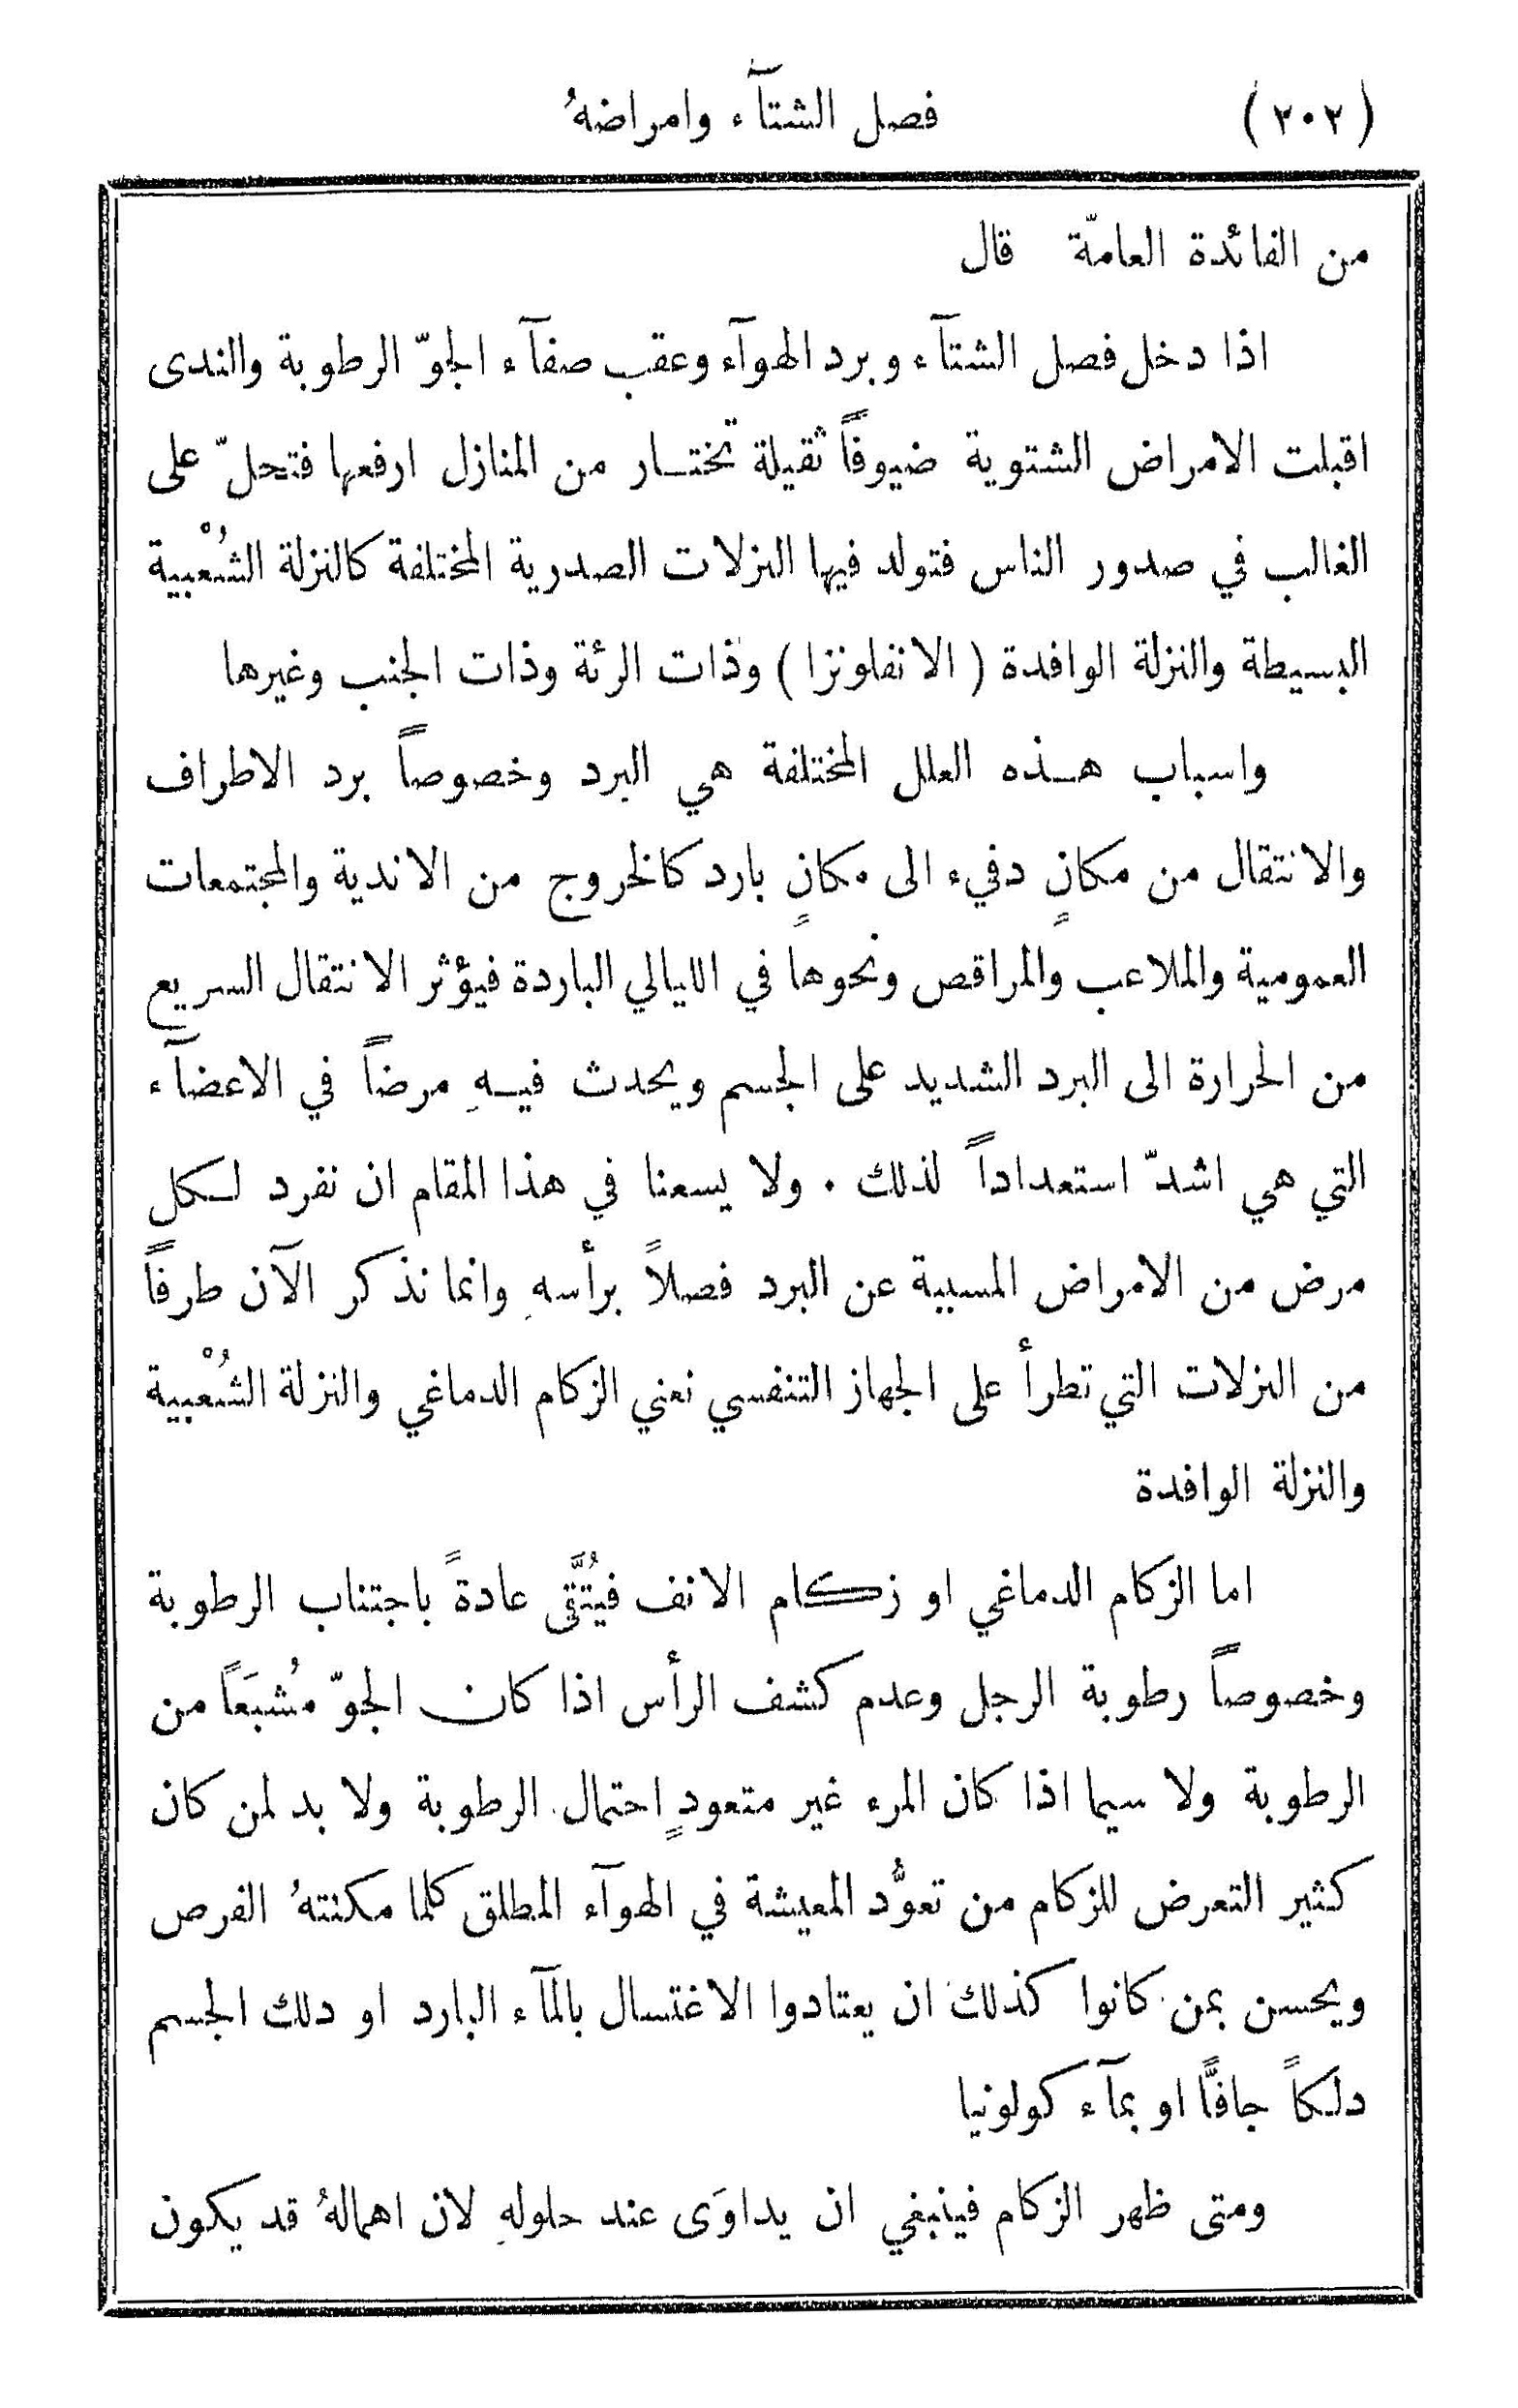 (٢٠٢) فصل الشتآء وامراضهُ
من الفائدة العامّة قال
اذا دخل فصل الشتآء وبرد الهوآء وعقب صفآء الجوّ الرطوبة والندى
اقبلت الامراض الشتوية ضيوفاً ثقيلة تختـار من المنازل ارفعها فتحلّ على
الغالب في صدور الناس فتولد فيها النزلات الصدرية المختلفة كالنزلة الشُعْبية
البسيطة والنزلة الوافدة (الانفلونزا) وذات الرئة وذات الجنب وغيرها
واسباب هـذه العلل المختلفة هي البرد وخصوصاً برد الاطراف
والانتقال من مكانٍ دفيء الى مكانٍ بارد كالخروج من الاندية والمجتمعات
العمومية والملاعب والمراقص ونحوها في الليالي الباردة فيؤثر الانتقال السريع
من الحرارة الى البرد الشديد على الجسم ويحدث فيـهِ مرضاً في الاعضآء
التي هي اشدّ استعداداً لذلك . ولا يسعنا في هذا المقام ان نفرد لـكل
مرض من الامراض المسببة عن البرد فصلاً برأسهِ وانما نذكر الآن طرفاً
من النزلات التي تطرأ على الجهاز التنفسي نعني الزكام الدماغي والنزلة الشُعْبية
والنزلة الوافدة
اما الزكام الدماغي او زكام الانف فيُتَّقى عادةً باجتناب الرطوبة
وخصوصاً رطوبة الرجل وعدم كشف الرأس اذا كان الجوّ مُشبَعاً من
الرطوبة ولا سيما اذا كان المرء غير متعودٍ احتمال الرطوبة ولا بد لمن كان
كثير التعرض للزكام من تعوُّد المعيشة في الهوآء المطلق كلما مكنتهُ الفرص
ويحسن بمن كانوا كذلك ان يعتادوا الاغتسال بالمآء البارد او دلك الجسم
دلكاً جافًّا او بمآء كولونيا
ومتى ظهر الزكام فينبغي ان يداوَى عند حلولهِ لان اهمالهُ قد يكون